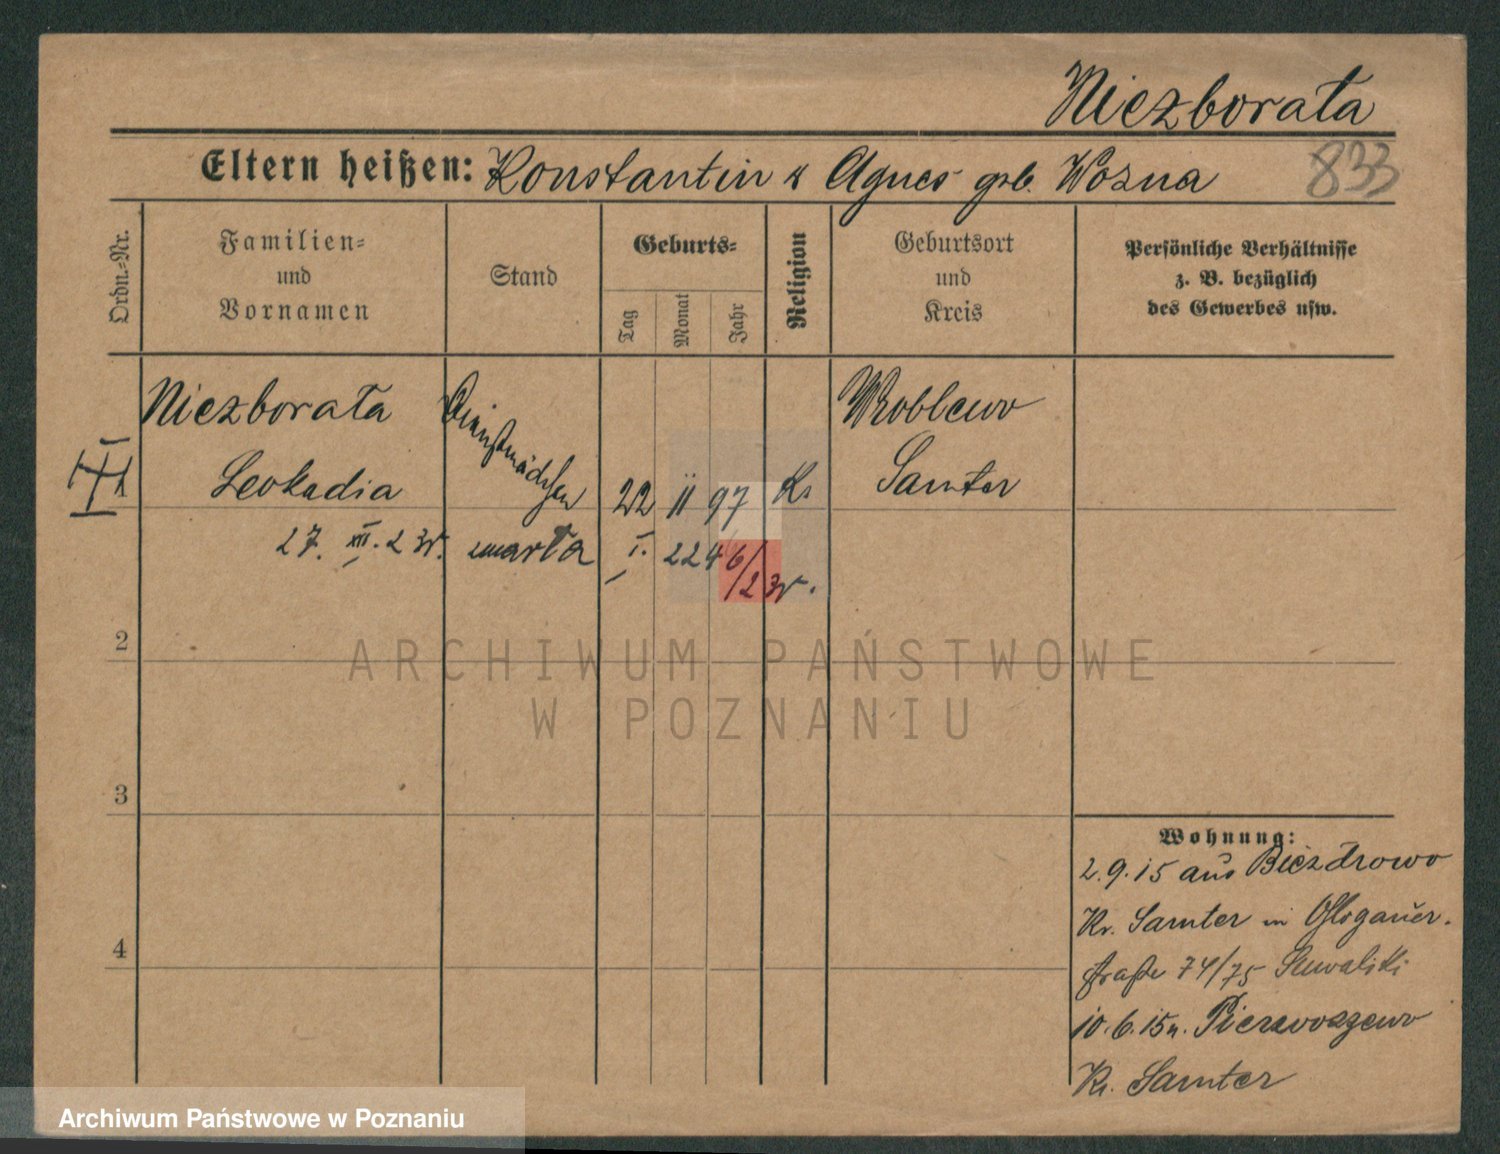 Niezborata
Eltern heißen: Konstantin u Agnes geb. Wozna
833
Ordn.=Nr.
Familien=
und
Vornamen
Stand
Geburts=
Tag
Monat
Jahr
Religion
Geburtsort
und
Kreis
Persönliche Verhältnisse
z. B. bezüglich
des Gewerbes usw.
Niezborata Dienstmädchen Wroblewo
Leokadia 22 II 97 K. Samter
27. XII. 23r. zmarła I. 2246/23r.
2
3
4
Wohnung:
2.9.15 aus Biezdrowo
Kr. Samter in Glogauer-
straße 74/75 Suwalski
10.6.15 n. Pierwoszewo
Kr. Samter
ARCHIWUM PAŃSTWOWE
W POZNANIU
Archiwum Państwowe w Poznaniu